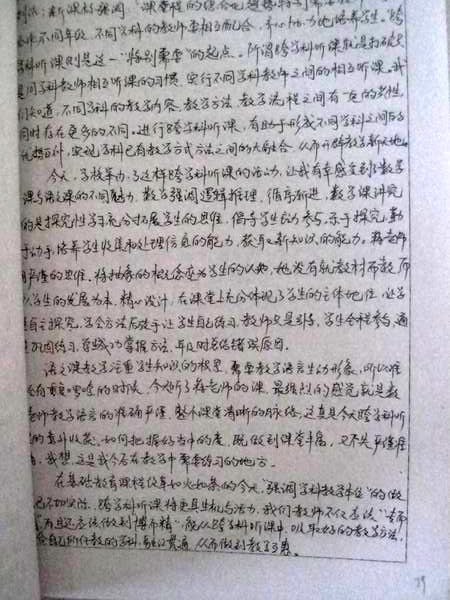 到底：新课标强调"课堂
要求不同年级、不同学科的教师要相互配合，齐心协力地培养学生。跨
学科听课则是这一"特别需要"的起点。所谓跨学科听课就是打破只
是同学科教师相互听课的习惯，实行不同学科教师之间的相互听课。我
们知道，不同学科的教学内容、教学方法、教学流程之间有一定的共性，
同时存在更多的不同。进行跨学科听课，有助于形成不同学科之间的
优势互补，实现学科已有教学方式方法之间的大融合，从而开辟教学新天地。
今天，学校举办了这样跨学科听课的活动，让我有幸感受到了数学
课与语文课的不同魅力。数学强调逻辑推理、循序渐进，数学课讲究
的是探究性学习，充分拓展学生的思维，倡导学生主动参与、乐于探究、勤
于动手，培养学生收集和处理信息的能力、获取新知识的能力。蒋老师
用严谨的思维，将抽象的概念变为学生的认知，她没有就教材而教，而
以学生的发展为本，精心设计，在课堂上充分体现了学生的主体地位，让学
生自主探究，学会方法后放手让学生自己练习，教师只是引导，学生全程参与，通
过巩固练习，自我掌握方法，并及时总结错误原因。
语文课教学注重学生知识的积累，需要教学语言生动形象，所以难
免有重复啰嗦的时候，今天听了蒋老师的课，最强烈的感觉就是数
老师教学语言的准确严谨，整个课堂清晰的脉络，这真是今天跨学科听
课的意外收获。如何把握好当中的度，既做到课堂丰富，又不失严谨准
确，我想，这是我今后在教学中需要练习的地方。
在基础教育课程改革如火如荼的今天，"强调学科教学本位"的做
已不切实际，跨学科听课将更具生机与活力，我们教师不仅要读"专而
，而且还应该做到"博而精"，能从跨学科听课中，吸取好的教学方法，
合自己所任教的学科，融会贯通，从而做到教学